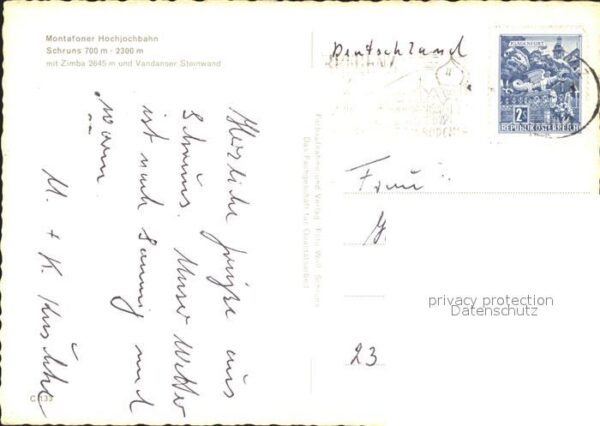 Montafoner Hochjochbahn
Schruns 700 m - 2300 m
mit Zimba 2645 m und Vandanser Steinwand
Herzliche Grüße aus
Schruns. Unser Wetter
ist noch sonnig und
warm.
M. + K.
C 133
Farbaufnahme und Verlag Foto Wolf Schruns
Das Fachgeschäft für Qualitätsarbeit
Deutschland
KLAGENFURT
2S
REPUBLIK ÖSTERREICH
Frau
23
privacy protection
Datenschutz